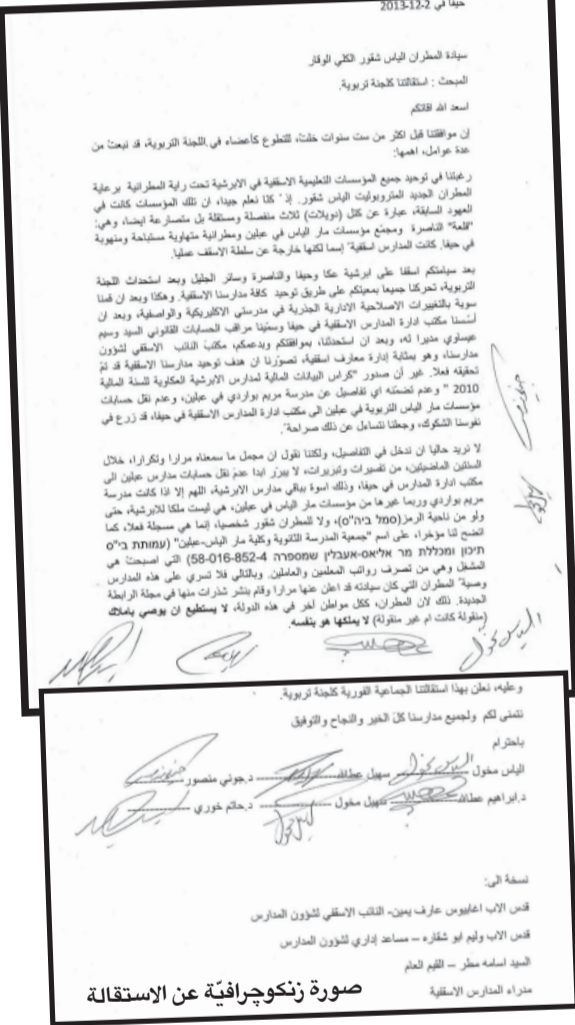 حيفا في 2-12-2013
سيادة المطران الياس شقور الكلي الوقار
المبحث : استقالتنا كلجنة تربوية.
اسعد الله اوقاتكم
إن موافقتنا قبل اكثر من ست سنوات خلت، للتطوع كأعضاء في اللجنة التربوية، قد نبعت من
عدة عوامل، اهمها:
رغبتنا في توحيد جميع المؤسسات التعليمية الاسقفية في الابرشية تحت راية المطرانية برعاية
المطران الجديد المتروبوليت الياس شقور. إذ كنا نعلم جيدا، ان تلك المؤسسات كانت في
العهود السابقة، عبارة عن كتل (دويلات) ثلاث منفصلة ومستقلة بل متصارعة ايضا، وهي:
"قلعة" الناصرة ومجمّع مؤسسات مار الياس في عبلين ومطرانية متهاوية مستباحة ومنهوبة
في حيفا. كانت المدارس اسقفية إسما لكنها خارجة عن سلطة الاسقف عمليا.
بعد سيامتكم اسقفا على ابرشية عكا وحيفا والناصرة وسائر الجليل وبعد استحداث اللجنة
التربوية، تحركنا جميعا بمعيتكم على طريق توحيد كافة مدارسنا الاسقفية. وهكذا وبعد ان قمنا
سوية بالتغييرات الاصلاحية الادارية الجذرية في مدرستي الاكليريكية والواصفية، وبعد ان
أسّسنا مكتب ادارة المدارس الاسقفية في حيفا وسمّينا مراقب الحسابات القانوني السيد وسيم
عيساوي مديرا له، وبعد ان استحدثنا، بموافقتكم وبدعمكم، مكتب النائب الاسقفي لشؤون
مدارسنا، وهو بمثابة إدارة معارف اسقفية، تصوّرنا ان هدف توحيد مدارسنا الاسقفية قد تمّ
تحقيقه فعلا. غير أن صدور "كراس البيانات المالية لمدارس الابرشية العكاوية للسنة المالية
2010 " وعدم تضمّنه اي تفاصيل عن مدرسة مريم بواردي في عبلين، وعدم نقل حسابات
مؤسسات مار الياس التربوية في عبلين الى مكتب ادارة المدارس الاسقفية في حيفا، قد زرع في
نفوسنا الشكوك، وجعلنا نتساءل عن ذلك صراحة.
لا نريد حاليا ان ندخل في التفاصيل، ولكننا نقول ان مجمل ما سمعناه مرارا وتكرارا، خلال
السنتين الماضيتين، من تفسيرات وتبريرات، لا يبرّر ابدا عدم نقل حسابات مدارس عبلين الى
مكتب ادارة المدارس في حيفا، وذلك اسوة بباقي مدارس الابرشية، اللهم إلا اذا كانت مدرسة
مريم بواردي وربما غيرها من مؤسسات مار الياس في عبلين، هي ليست ملكا للابرشية، حتى
ولو من ناحية الرمز (סמל ביה"ס)، ولا للمطران شقور شخصيا، إنما هي مسجلة فعلا، كما
اتضح لنا مؤخرا، على اسم "جمعية المدرسة الثانوية وكلية مار الياس-عبلين" (עמותת בי"ס
תיכון ומכללת מר אליאס-אעבלין שמספרה 58-016-852-4) التي اصبحت هي
المشغل وهي من تصرف رواتب المعلمين والعاملين. وبالتالي فلا تسري على هذه المدارس
وصية المطران التي كان سيادته قد اعلن عنها مرارا وقام بنشر شذرات منها في مجلة الرابطة
الجديدة. ذلك لان المطران، ككل مواطن آخر في هذه الدولة، لا يستطيع ان يوصي باملاك
(منقولة كانت ام غير منقولة) لا يملكها هو بنفسه.
وعليه، نعلن بهذا استقالتنا الجماعية الفورية كلجنة تربوية.
نتمنى لكم ولجميع مدارسنا كلّ الخير والنجاح والتوفيق
باحترام
الياس مخول ـــــــ سهيل عطالله ـــــــ د.جوني منصور ـــــــ
د.ابراهيم عطالله ـــــــ سهيل مخول ـــــــ د.حاتم خوري ـــــــ
نسخة الى:
قدس الاب اغابيوس عارف يمين- النائب الاسقفي لشؤون المدارس
قدس الاب وليم ابو شقاره – مساعد إداري لشؤون المدارس
السيد اسامه مطر – القيم العام
مدراء المدارس الاسقفية
صورة زنكوچرافيّة عن الاستقالة